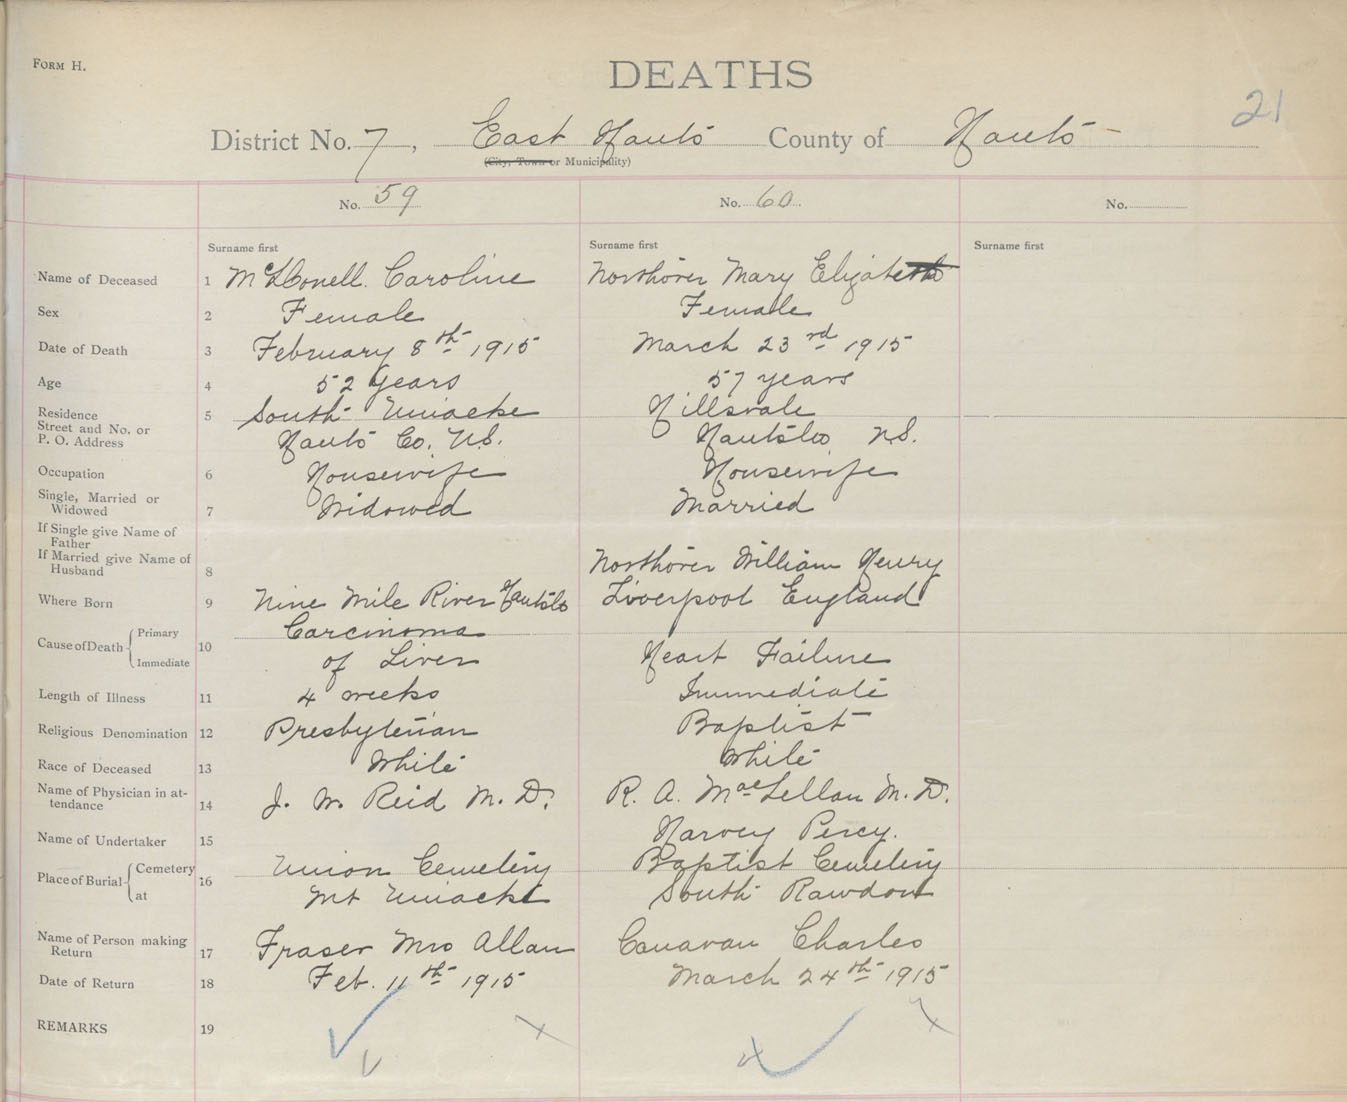 FORM H.
DEATHS
21
District No. 7, East Hants County of Hants
(City, Town or Municipality)
No. 59 No. 60 No.
Surname first Surname first Surname first
Name of Deceased 1 Caroline Northover Mary Elizabeth
Sex 2 Female Female
Date of Death 3 February 8th 1915 March 23rd 1915
Age 4 52 years 57 years
Residence 5 South Uniacke Hillsvale
Street and No. or
P. O. Address Hants Co. N.S. Hants Co N.S.
Occupation 6 Housewife Housewife
Single, Married or
Widowed 7 Widowed Married
If Single give Name of
Father
If Married give Name of
Husband 8 Northover William Henry
Where Born 9 Nine Mile River Hants Co Liverpool England
Cause of Death { Primary 10 Carcinoma
Immediate of Liver Heart Failure
Length of Illness 11 4 weeks Immediate
Religious Denomination 12 Presbyterian Baptist
Race of Deceased 13 White White
Name of Physician in at-
tendance 14 J. W. Reid M. D. R. A. MacLellan M. D.
Name of Undertaker 15 Harvey Percy.
Place of Burial { Cemetery 16 Union Cemetery Baptist Cemetery
at Mt Uniacke South Rawdon
Name of Person making
Return 17 Fraser Mrs Allan Canavan Charles
Date of Return 18 Feb. 11th 1915 March 24th 1915
REMARKS 19